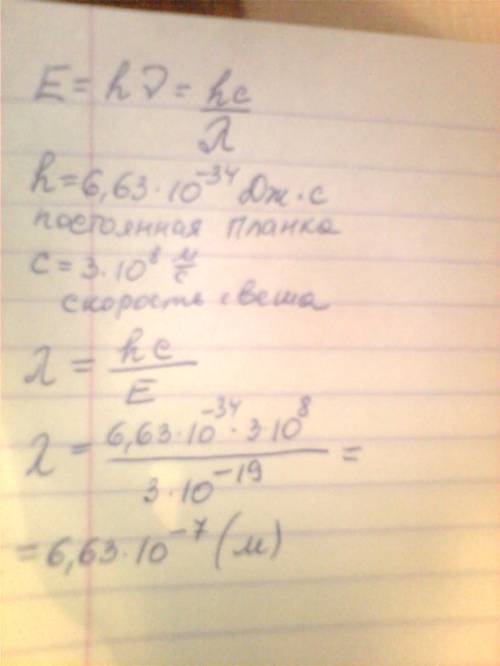 E = hν = hc/λ
h = 6,63·10⁻³⁴ Дж·с
постоянная планка
c = 3·10⁸ м/с
скорость света
λ = hc/E
λ = 6,63·10⁻³⁴·3·10⁸/3·10⁻¹⁹ =
= 6,63·10⁻⁷ (м)